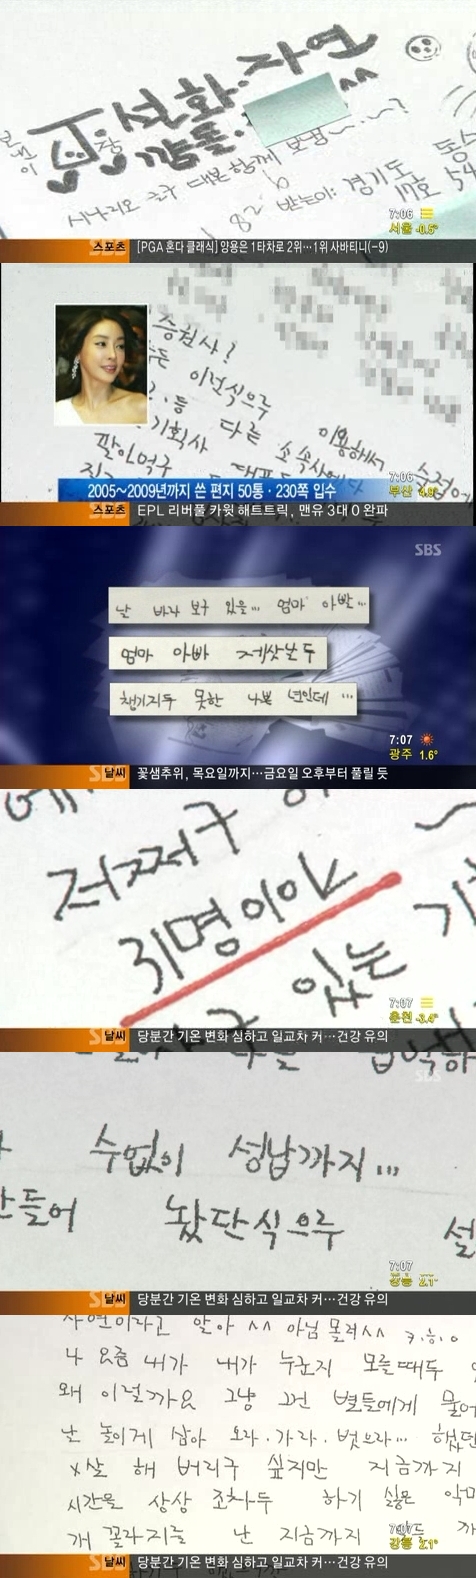 설화.자연
시나리오 글구 대본 함께 보냄~~?
받는이: 경기도
7:06
서울 -0.5°
스포츠 [PGA 혼다 클래식] 양용은 1타차로 2위…1위 사바티니(-9)
이런식으루
다른 소속사에다
이용해서
기획사
팔아먹구
2005~2009년까지 쓴 편지 50통·230쪽 입수
7:06
부산 4.9°
스포츠 EPL 리버풀 카윗 해트트릭, 맨유 3대 0 완파
SBS
날 바라 보구 있을… 엄마 아빤…
엄마 아빠 제삿날두
챙기지두 못한 나쁜 년인데…
7:07
광주 1.6°
날씨 꽃샘추위, 목요일까지…금요일 오후부터 풀릴 듯
저쩌구
31명이야
있는
7:07
춘천 -3.4°
날씨 당분간 기온 변화 심하고 일교차 커…건강 유의
SBS
수없이 성남까지...
만들어 놨단식으루
7:07
강릉 2.1°
날씨 당분간 기온 변화 심하고 일교차 커…건강 유의
자연이라고 알아 ^^ 아님 몰려 ^^ ㅋ.ㅎ.ㅇ
나 요즘 내가 내가 누군지 모를때두
왜 이럴까요 그냥 그런 별들에게 물어
난 놀이게 삼아 오라.가라.벗으라… 했던
x살 해 버리구 싶지만 지금까지
시간을 상상 조차두 하기 싫은 악마
개 꼴라지들 난 지금까지
7:07
강릉 2.1°
날씨 당분간 기온 변화 심하고 일교차 커…건강 유의